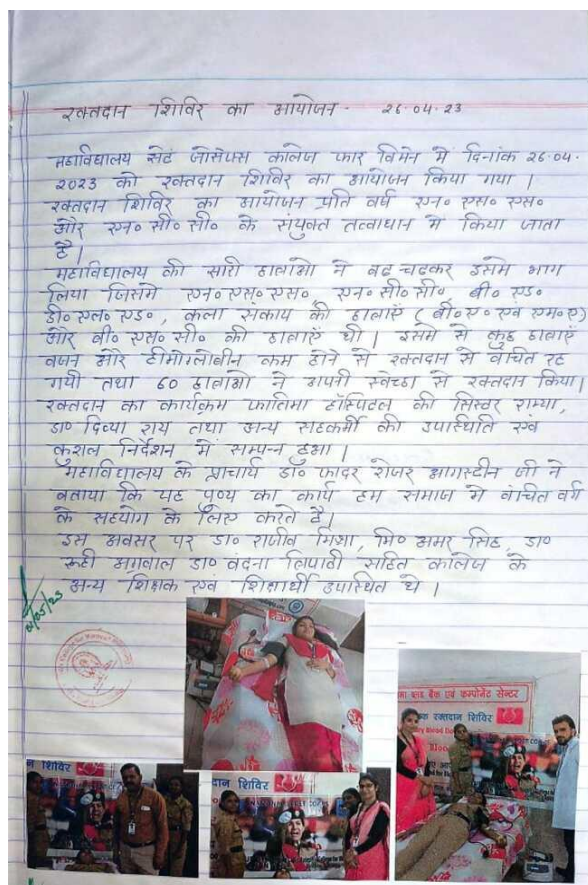 रक्तदान शिविर का आयोजन - 26.04.23
महाविद्यालय सेंट जोसेफ्स कॉलेज फार विमेन में दिनांक 26.04.
2023 को रक्तदान शिविर का आयोजन किया गया |
रक्तदान शिविर का आयोजन प्रति वर्ष एन० एस० एस०
और एन० सी० सी० के संयुक्त तत्वाधान में किया जाता
है |
महाविद्यालय की सारी छात्राओ ने बढ़ चढ़कर इसमे भाग
लिया जिसमे एन० एस० एस०, एन० सी० सी०, बी० एड०
डी० एल० एड०, कला संकाय की छात्राएँ (बी० ए० एवं एम० ए)
और बी० एस० सी० की छात्राएँ थी | इसमे से कुछ छात्राएं
वजन और हीमोग्लोबीन कम होने से रक्तदान से वंचित रह
गयी तथा 60 छात्राओ ने अपनी स्वेच्छा से रक्तदान किया|
रक्तदान का कार्यक्रम फातिमा हॉस्पिटल की सिस्टर राम्या,
डा० दिव्या राय तथा अन्य सहकर्मी की उपस्थिति एवं
कुशल निर्देशन में सम्पन्न हुआ |
महाविद्यालय के प्राचार्य डॉ० फादर रोजर आगस्टीन जी ने
बताया कि यह पुण्य का कार्य हम समाज मे वंचित वर्ग
के सहयोग के लिए करते है|
इस अवसर पर डा० राजीव मिश्रा, मि० अमर सिंह, डा०
रूही अग्रवाल डा० वंदना त्रिपाठी सहित कॉलेज के
अन्य शिक्षक एवं शिक्षार्थी उपस्थित थे |
मा ब्लड बैंक एवं कम्पोनेंट सेन्टर
क रक्तदान शिविर
Blood
न शिविर
दान शिविर